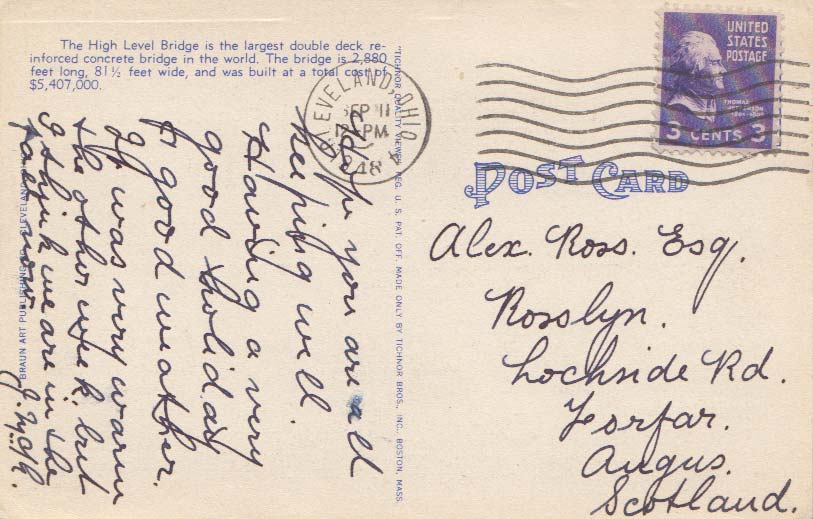 The High Level Bridge is the largest double deck re-
inforced concrete bridge in the world. The bridge is 2,880
feet long, 81½ feet wide, and was built at a total cost of
$5,407,000.
"TICHNOR QUALITY VIEWS," REG. U. S. PAT. OFF. MADE ONLY BY TICHNOR BROS., INC., BOSTON, MASS.
BRAUN ART PUBLISHING CO., CLEVELAND
CLEVELAND, OHIO
SEP 11
12-PM
1948
UNITED
STATES
POSTAGE
THOMAS
JEFFERSON
3 CENTS 3
POST CARD
Hope you are all
keeping well.
Having a very
good holiday
& good weather.
It was very warm
the other week. but
I think we are in the
fall now.
Alex. Ross. Esq.
Rosslyn.
Lochside Rd.
Forfar.
Angus.
Scotland.